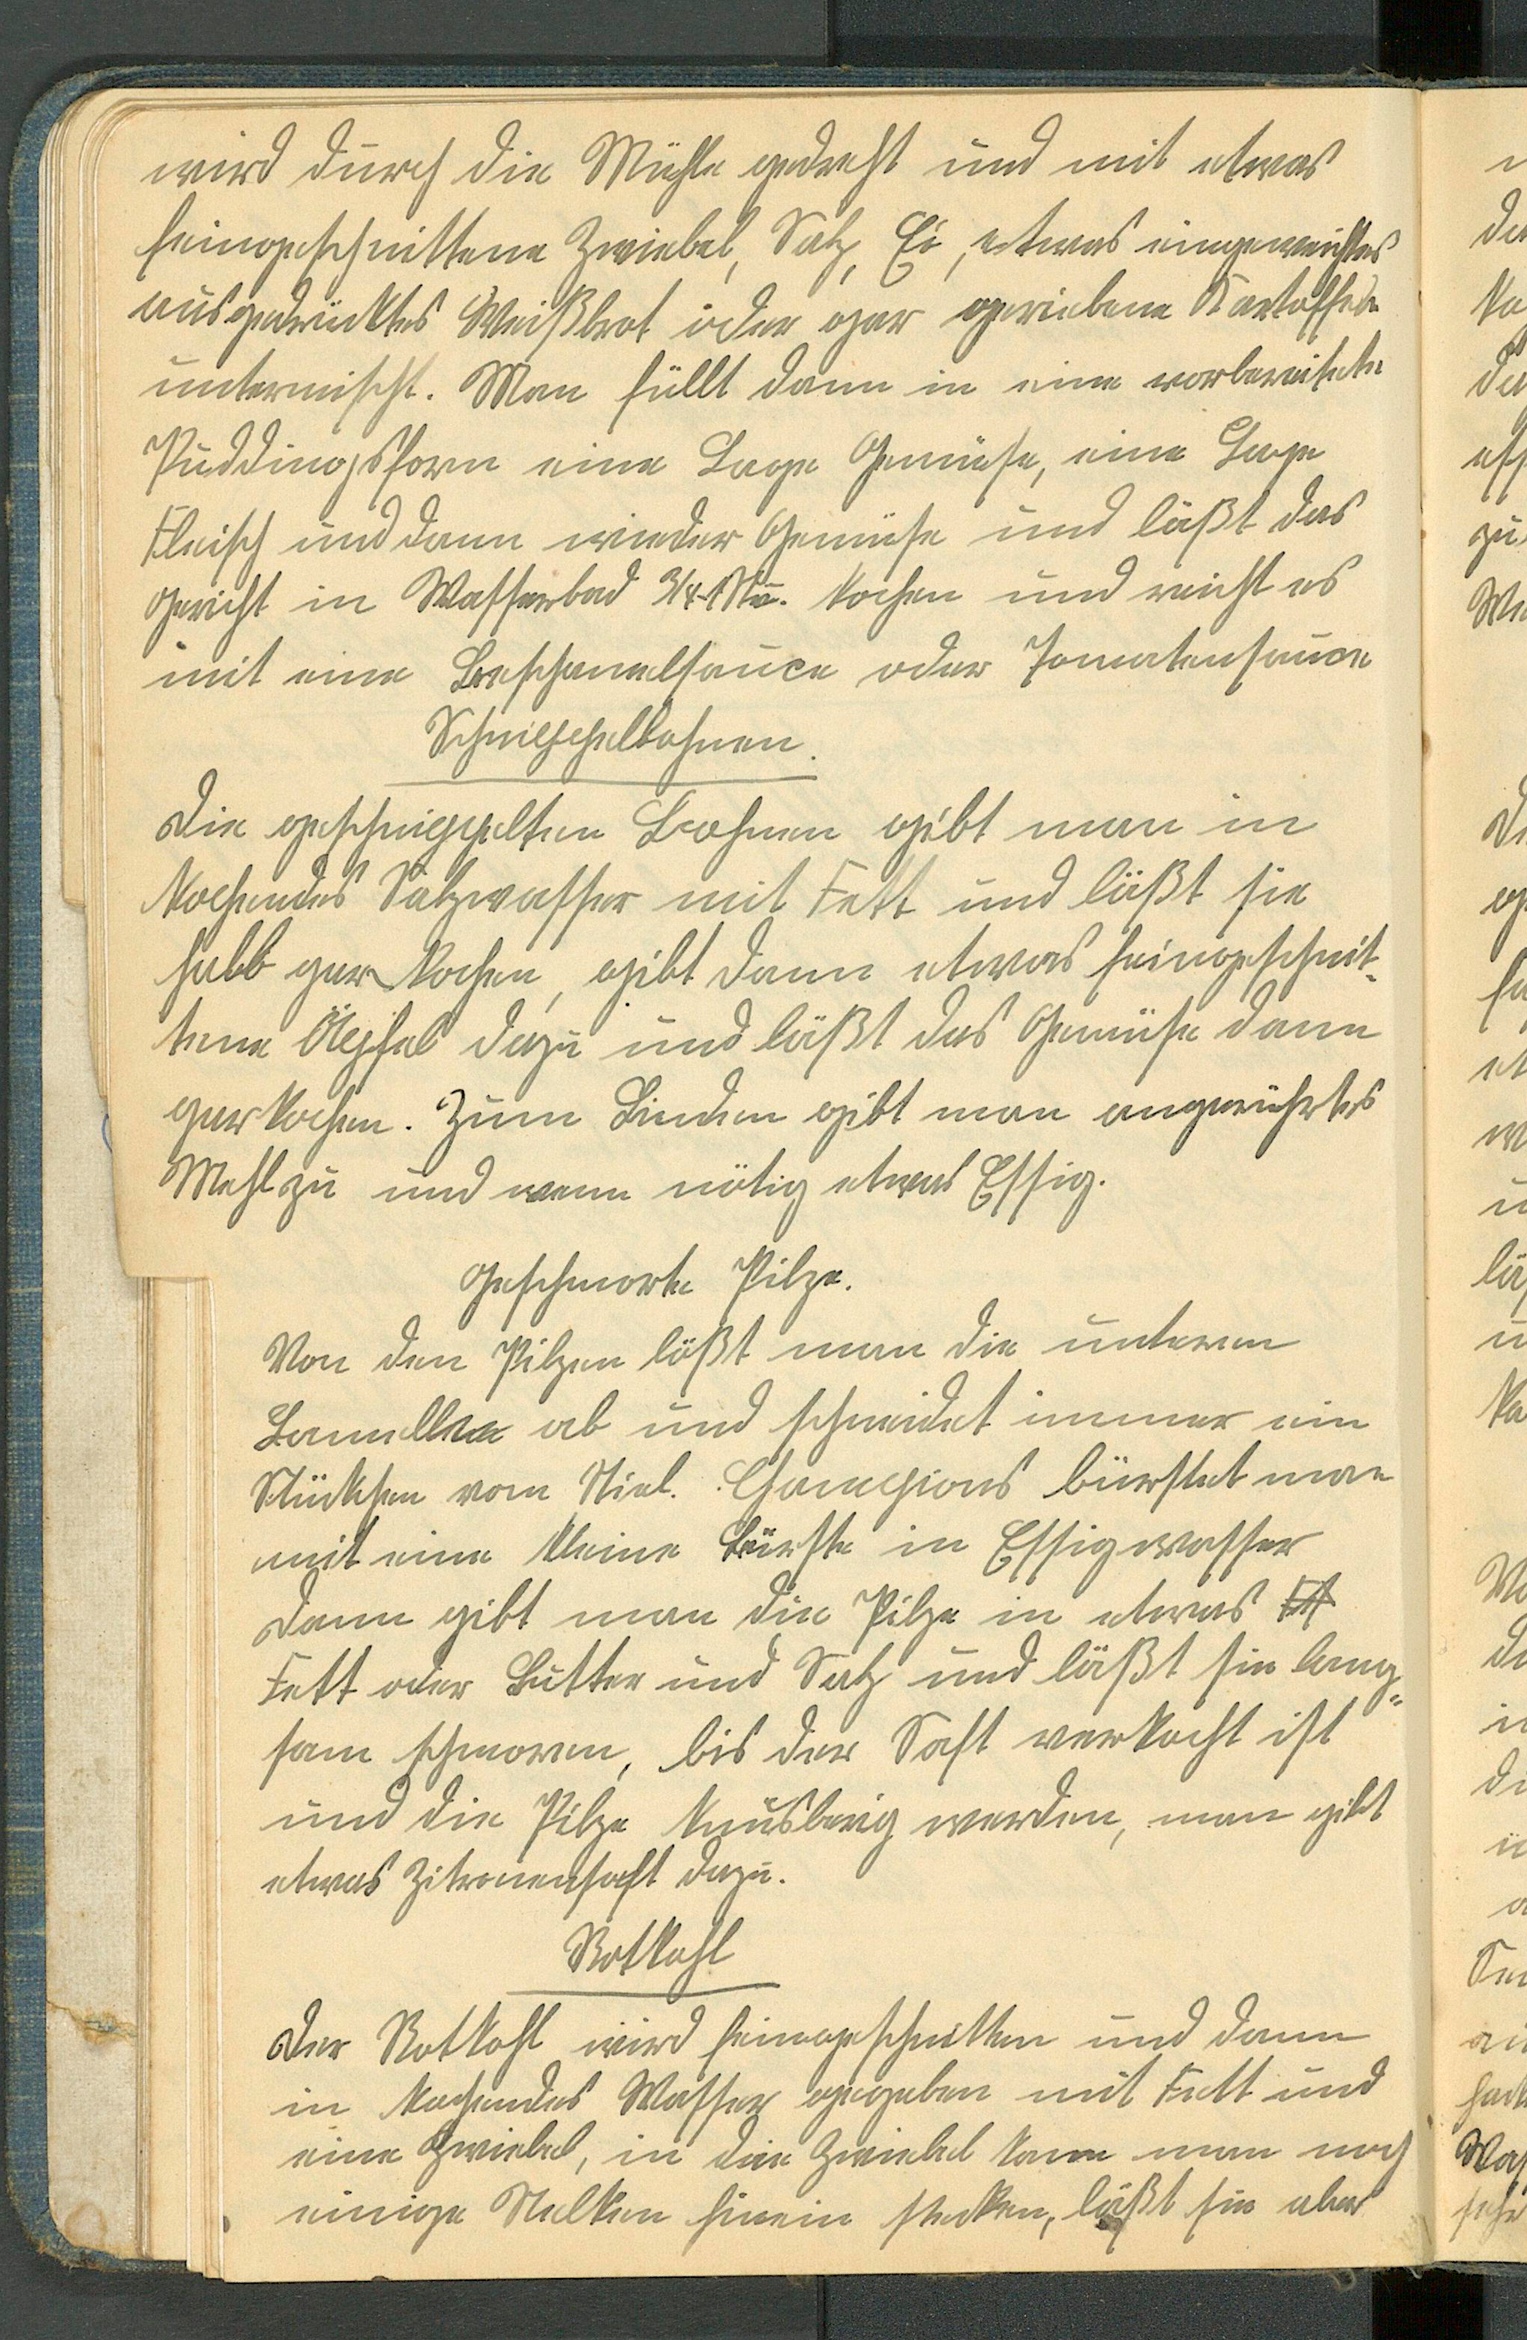 wird durch die Mühle gedreht und mit etwas
feingeschnittene Zwiebel, Salz, Ei, etwas eingeweichtes
ausgedrücktes Weißbrot oder gar geriebene Kartoffeln
untermischt. Man füllt dann in eine vorbereitete
Puddingsform eine Lage Gemüse, eine Lage
Fleisch und dann wieder Gemüse und läßt das
Gericht in Wasserbad 3/4-1 Stu. kochen und reicht es
mit eine Beschamelsauce oder Tomatensauce
Schnippelbohnen.
Die geschnippelten Bohnen gibt man in
kochendes Salzwasser mit Fett und läßt sie
halb gar kochen, gibt dann etwas feingeschnit-
tene Äpfel dazu und läßt das Gemüse dann
gar kochen. Zum Binden gibt man angerührtes
Mehl zu und wenn nötig etwas Essig.
Geschmorte Pilze.
Von den Pilzen lößt man die unteren
Lamellen ab und schneidet immer ein
Stückchen vom Stiel. Champions bürstet man
mit eine kleine Bürste in Essigwasser
Dann gibt man die Pilze in etwas
Fett oder Butter und Salz und läßt sie lang-
sam schmoren, bis der Saft verkocht ist
und die Pilze knusberig werden, man gibt
etwas Zitronensaft dazu.
Rotkohl
Der Rotkohl wird feingeschnitten und dann
in kochendes Wasser gegeben mit Fett und
eine Zwiebel, in die Zwiebel kann man noch
einige Nelken hinein stecken, läßt sie aber